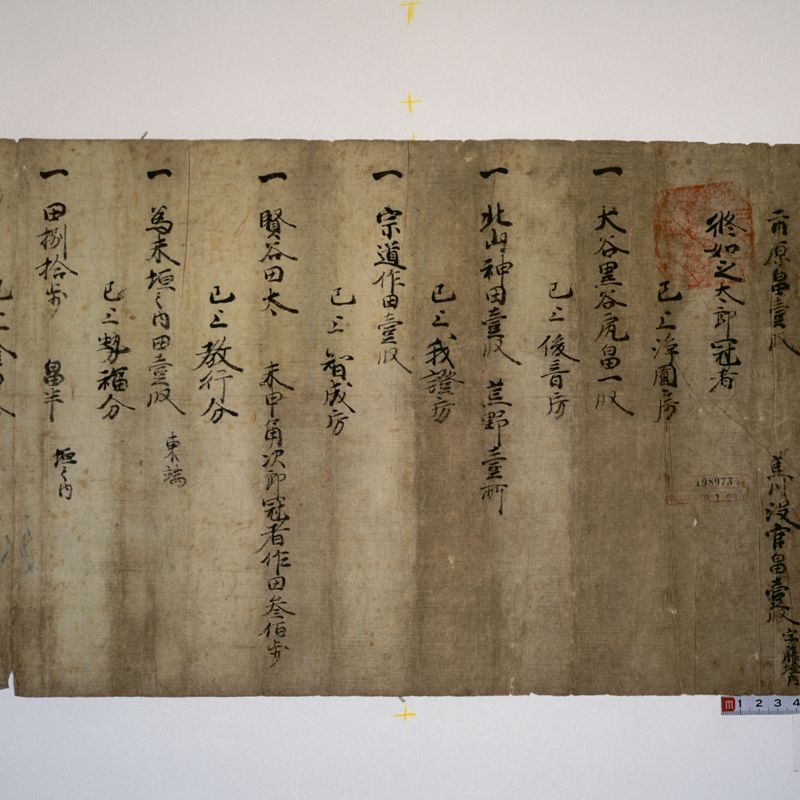 市原畠壹段 葛川没官畠壹段 字藤墻内
修如之太郎冠者
已上浄圓房
一 犬谷黒谷虎畠一段
已上俊音房
一 北山神田壹段 荒野壹所
已上我證房
一 宗道作田壹段
已上智成房
一 賢谷田大 末甲角次郎冠者作田叁佰歩
已上教行分
一 為末垣之内田壹段 東端
已上勢福分
一 田捌拾歩 畠半 垣之内
已上
198973
1 2 3 4